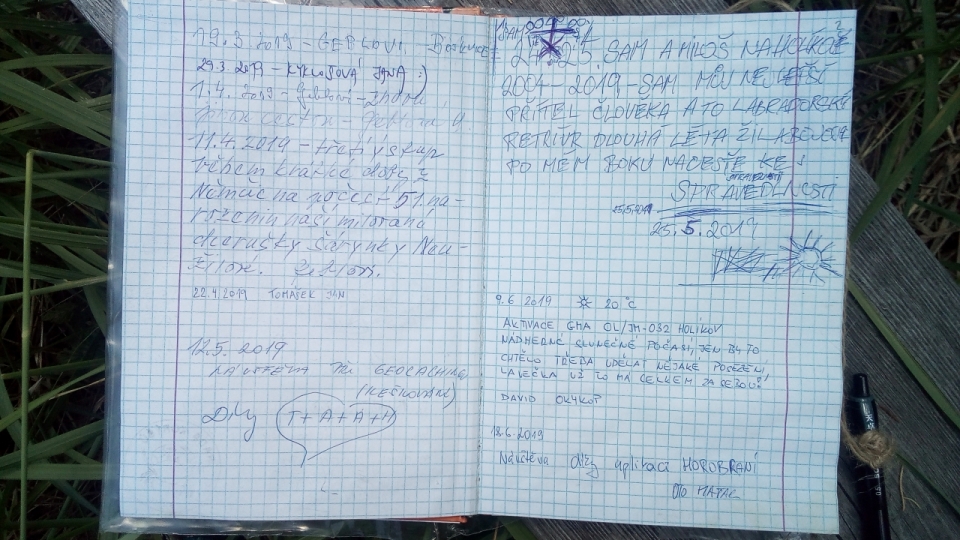 19.3 2019 - GEBLOVI.
29.3.2019 - KYKLOŠOVÁ JANA :)
1.4. 2019 - Geblovi -
11.4.2019 - třetí výstup
během krátké doby z
Němec na počest 51. na-
rozenin naší milované
dcerušky Šárynky Neu-
žilové.
22.4.2019 TOMÁŠEK JAN
12.5. 2019
NÁVŠTĚVA PŘI GEOCACHING
(KEŠKOVÁNÍ)
Díky T+A+A+H
SAM A MILOŠ
2004-2019 - SAM MŮJ NEJLEPŠÍ
PŘÍTEL ČLOVĚKA A TO LABRADORSKÝ
RETRÍVR DLOUHÁ LÉTA ŽIL
PO MÉM BOKU NA CESTĚ KE
SPRAVEDLNOSTI
25.5.2019
25.5.2019
9.6 2019 20°C
AKTIVACE GMA OL/JM-032 HOLÍKOV
NÁDHERNÉ SLUNEČNÉ POČASÍ, JEN BY TO
CHTĚLO TŘEBA UDĚLAT NĚJAKÉ POSEZENÍ
LAVEČKA UŽ TO MÁ CELKEM ZA SEBOU!
DAVID
12.6.2019
Návštěva díky aplikaci HOROBRANÍ